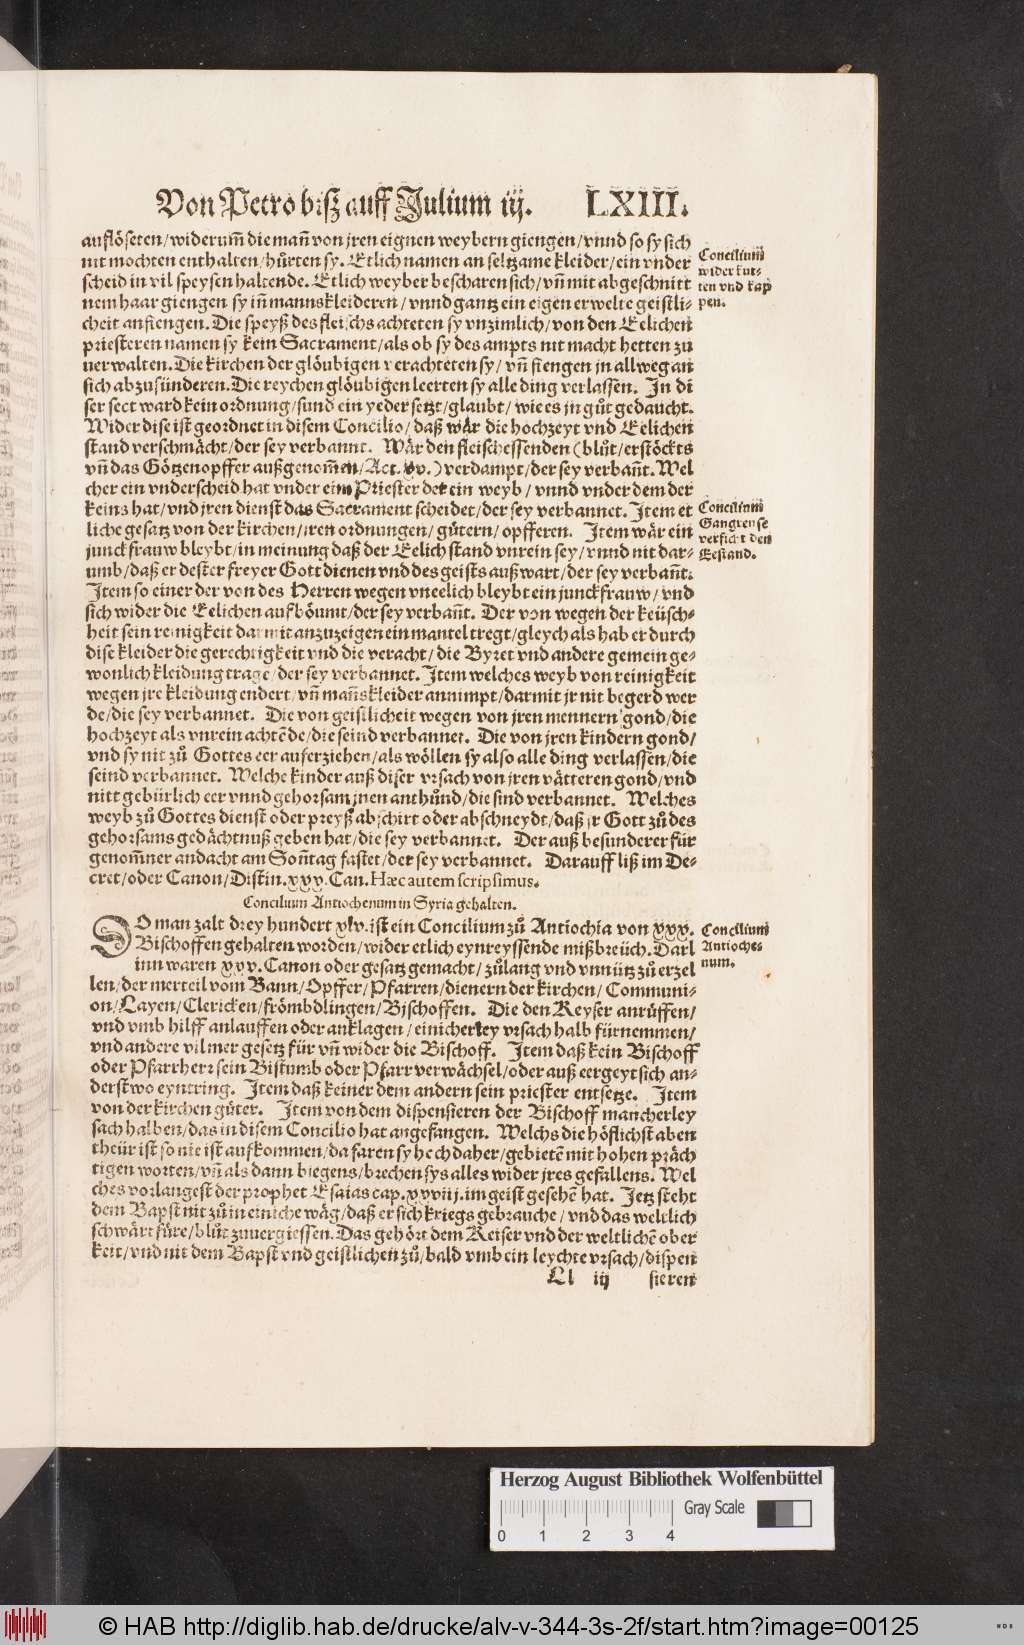 Von Petro biſz auff Julium iij. LXIII.
auflöſeten/widerum̃ die man̄ von jren eignen weybern giengen/vnnd ſo ſy ſich
nit mochten enthalten/hůrten ſy. Etlich namen an ſeltzame kleider/ein vnder
ſcheid in vil ſpeyſen haltende. Etlich weyber beſcharen ſich/vn̄ mit abgeſchnitt
nem haar giengen ſy in̄ mannskleideren/vnnd gantz ein eigen erwelte geiſtli⸗
cheit anfiengen. Die ſpeyß des fleiſchs achteten ſy vnzimlich/von den Eelichen
prieſteren namen ſy kein Sacrament/als ob ſy des ampts nit macht hetten zů
verwalten. Die kirchen der glöubigen verachteten ſy/vn̄ fiengen jn allweg an
ſich abzuſünderen. Die reychen glöubigen leerten ſy alle ding verlaſſen. In di
ſer ſect ward kein ordnung/ſund ein yeder ſetzt/glaubt/wie es jn gůt gedaucht.
Wider diſe iſt geordnet in diſem Concilio/daß wär die hochzeyt vnd Eelichen
ſtand verſchmächt/der ſey verbannt. Wär den fleiſcheſſenden (blůt/erſtöckts
vn̄ das Götzenopffer außgenom̄en/Act. xv.) verdampt/der ſey verban̄t. Wel
cher ein vnderſcheid hat vnder eim Prieſter der ein weyb/vnnd vnder dem der
keins hat/vnd jren dienſt das Sacrament ſcheidet/der ſey verbannet. Item et
liche geſatz von der kirchen/jren ordnungen/gůtern/opfferen. Item wär ein
junckfrauw bleybt/in meinung daß der Eelich ſtand vnrein ſey/vnnd nit dar⸗
umb/daß er deſter freyer Gott dienen vnd des geiſts außwart/der ſey verban̄t.
Item ſo einer der von des Herren wegen vneelich bleybt ein junckfrauw/vnd
ſich wider die Eelichen aufböumt/der ſey verban̄t. Der von wegen der keüſch⸗
heit ſein reinigkeit darmit anzuzeigen ein mantel tregt/gleych als hab er durch
diſe kleider die gerechtigkeit vnd die veracht/die Byret vnd andere gemein ge⸗
wonlich kleidung trage/der ſey verbannet. Item welches weyb von reinigkeit
wegen jre kleidung endert/vn̄ man̄skleider annimpt/darmit jr nit begerd wer
de/die ſey verbannet. Die von geiſtlicheit wegen von jren mennern gond/die
hochzeyt als vnrein achtēde/die ſeind verbannet. Die von jren kindern gond/
vnd ſy nit zů Gottes eer auferziehen/als wöllen ſy alſo alle ding verlaſſen/die
ſeind verbannet. Welche kinder auß diſer vrſach von jren vätteren gond/vnd
nitt gebürlich eer vnnd gehorſam jnen anthůnd/die ſind verbannet. Welches
weyb zů Gottes dienſt oder preyß abſchirt oder abſchneydt/daß jr Gott zů des
gehorſams gedächtnuß geben hat/die ſey verbannet. Der auß beſunderer für
genom̄ner andacht am Son̄tag faſtet/der ſey verbannet. Darauff liß im De⸗
cret/oder Canon/Diſtin. xxx. Can. Hæc autem ſcripſimus.
Concilium wider kut⸗ten vnd kappen.
Concilium Gangrenſe verficht den Eeſtand.
Concilium Antiochenum in Syria gehalten.
DO man zalt drey hundert xlv. iſt ein Concilium zů Antiochia von xxx.
Biſchoffen gehalten worden/wider etlich eynreyſſende mißbreüch. Dar⸗
inn waren xxv. Canon oder geſatz gemacht/zůlang vnd vnnütz zů erzel
len/der merteil vom Bann/Opffer/Pfarren/dienern der kirchen/Communi⸗
on/Layen/Clericken/frömbdlingen/Biſchoffen. Die den Keyſer anrůffen/
vnd vmb hilff anlauffen oder anklagen/einicherley vrſach halb fürnemmen/
vnd andere vil mer geſetz für vn̄ wider die Biſchoff. Item daß kein Biſchoff
oder Pfarrherr ſein Biſtumb oder Pfarr verwächſel/oder auß eergeyt ſich an⸗
derſtwo eyntring. Item daß keiner dem andern ſein prieſter entſetze. Item
von der kirchen güter. Item von dem diſpenſieren der Biſchoff mancherley
ſach halben/das in diſem Concilio hat angefangen. Welchs die höflichſt aben
theür iſt ſo nie iſt aufkommen/da faren ſy hoch daher/gebietē mit hohen präch
tigen worten/vn̄ als dann biegens/brechen ſys alles wider jres gefallens. Wel
ches vorlangeſt der prophet Eſaias cap. xxviij. im geiſt geſehē hat. Jetz ſteht
dem Bapſt nit zů in einiche wäg/daß er ſich kriegs gebrauche/vnd das weltlich
ſchwärt füre/blůt zuuergieſſen. Das gehört dem Keiſer vnd der weltlichē ober
keit/vnd nit dem Bapſt vnd geiſtlichen zů/bald vmb ein leychte vrſach/diſpen
Concilium Antioche⸗num.
Ll iij ſieren
Herzog August Bibliothek Wolfenbüttel
Gray Scale
0 1 2 3 4
© HAB http://diglib.hab.de/drucke/alv-v-344-3s-2f/start.htm?image=00125